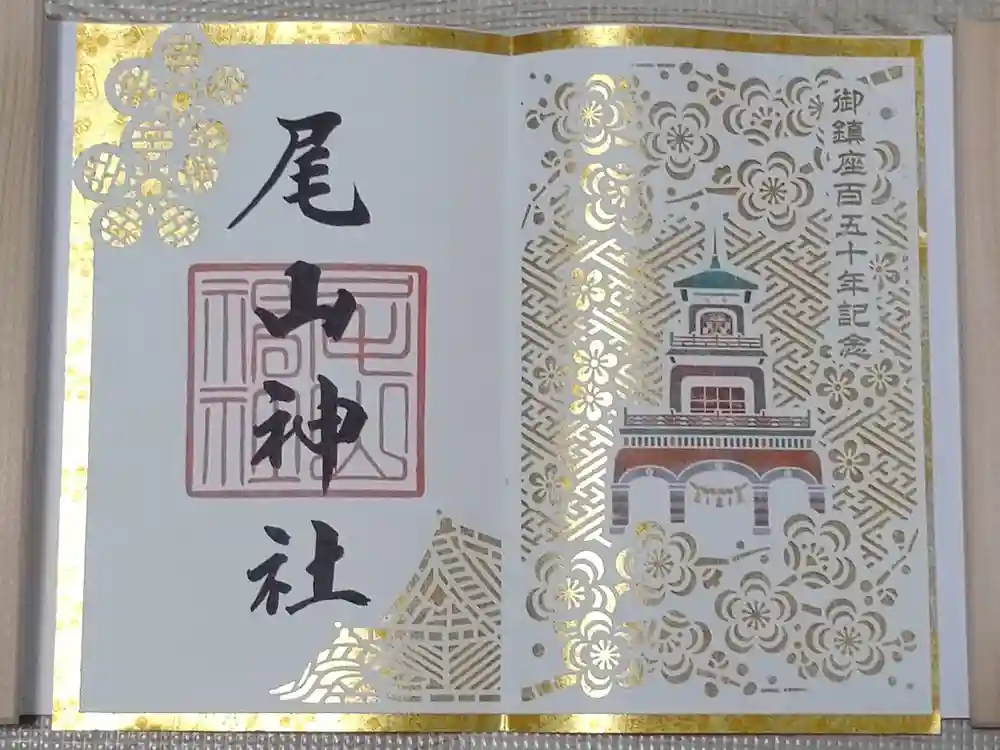 御鎮座百五十年記念
尾山神社
尾山
神社